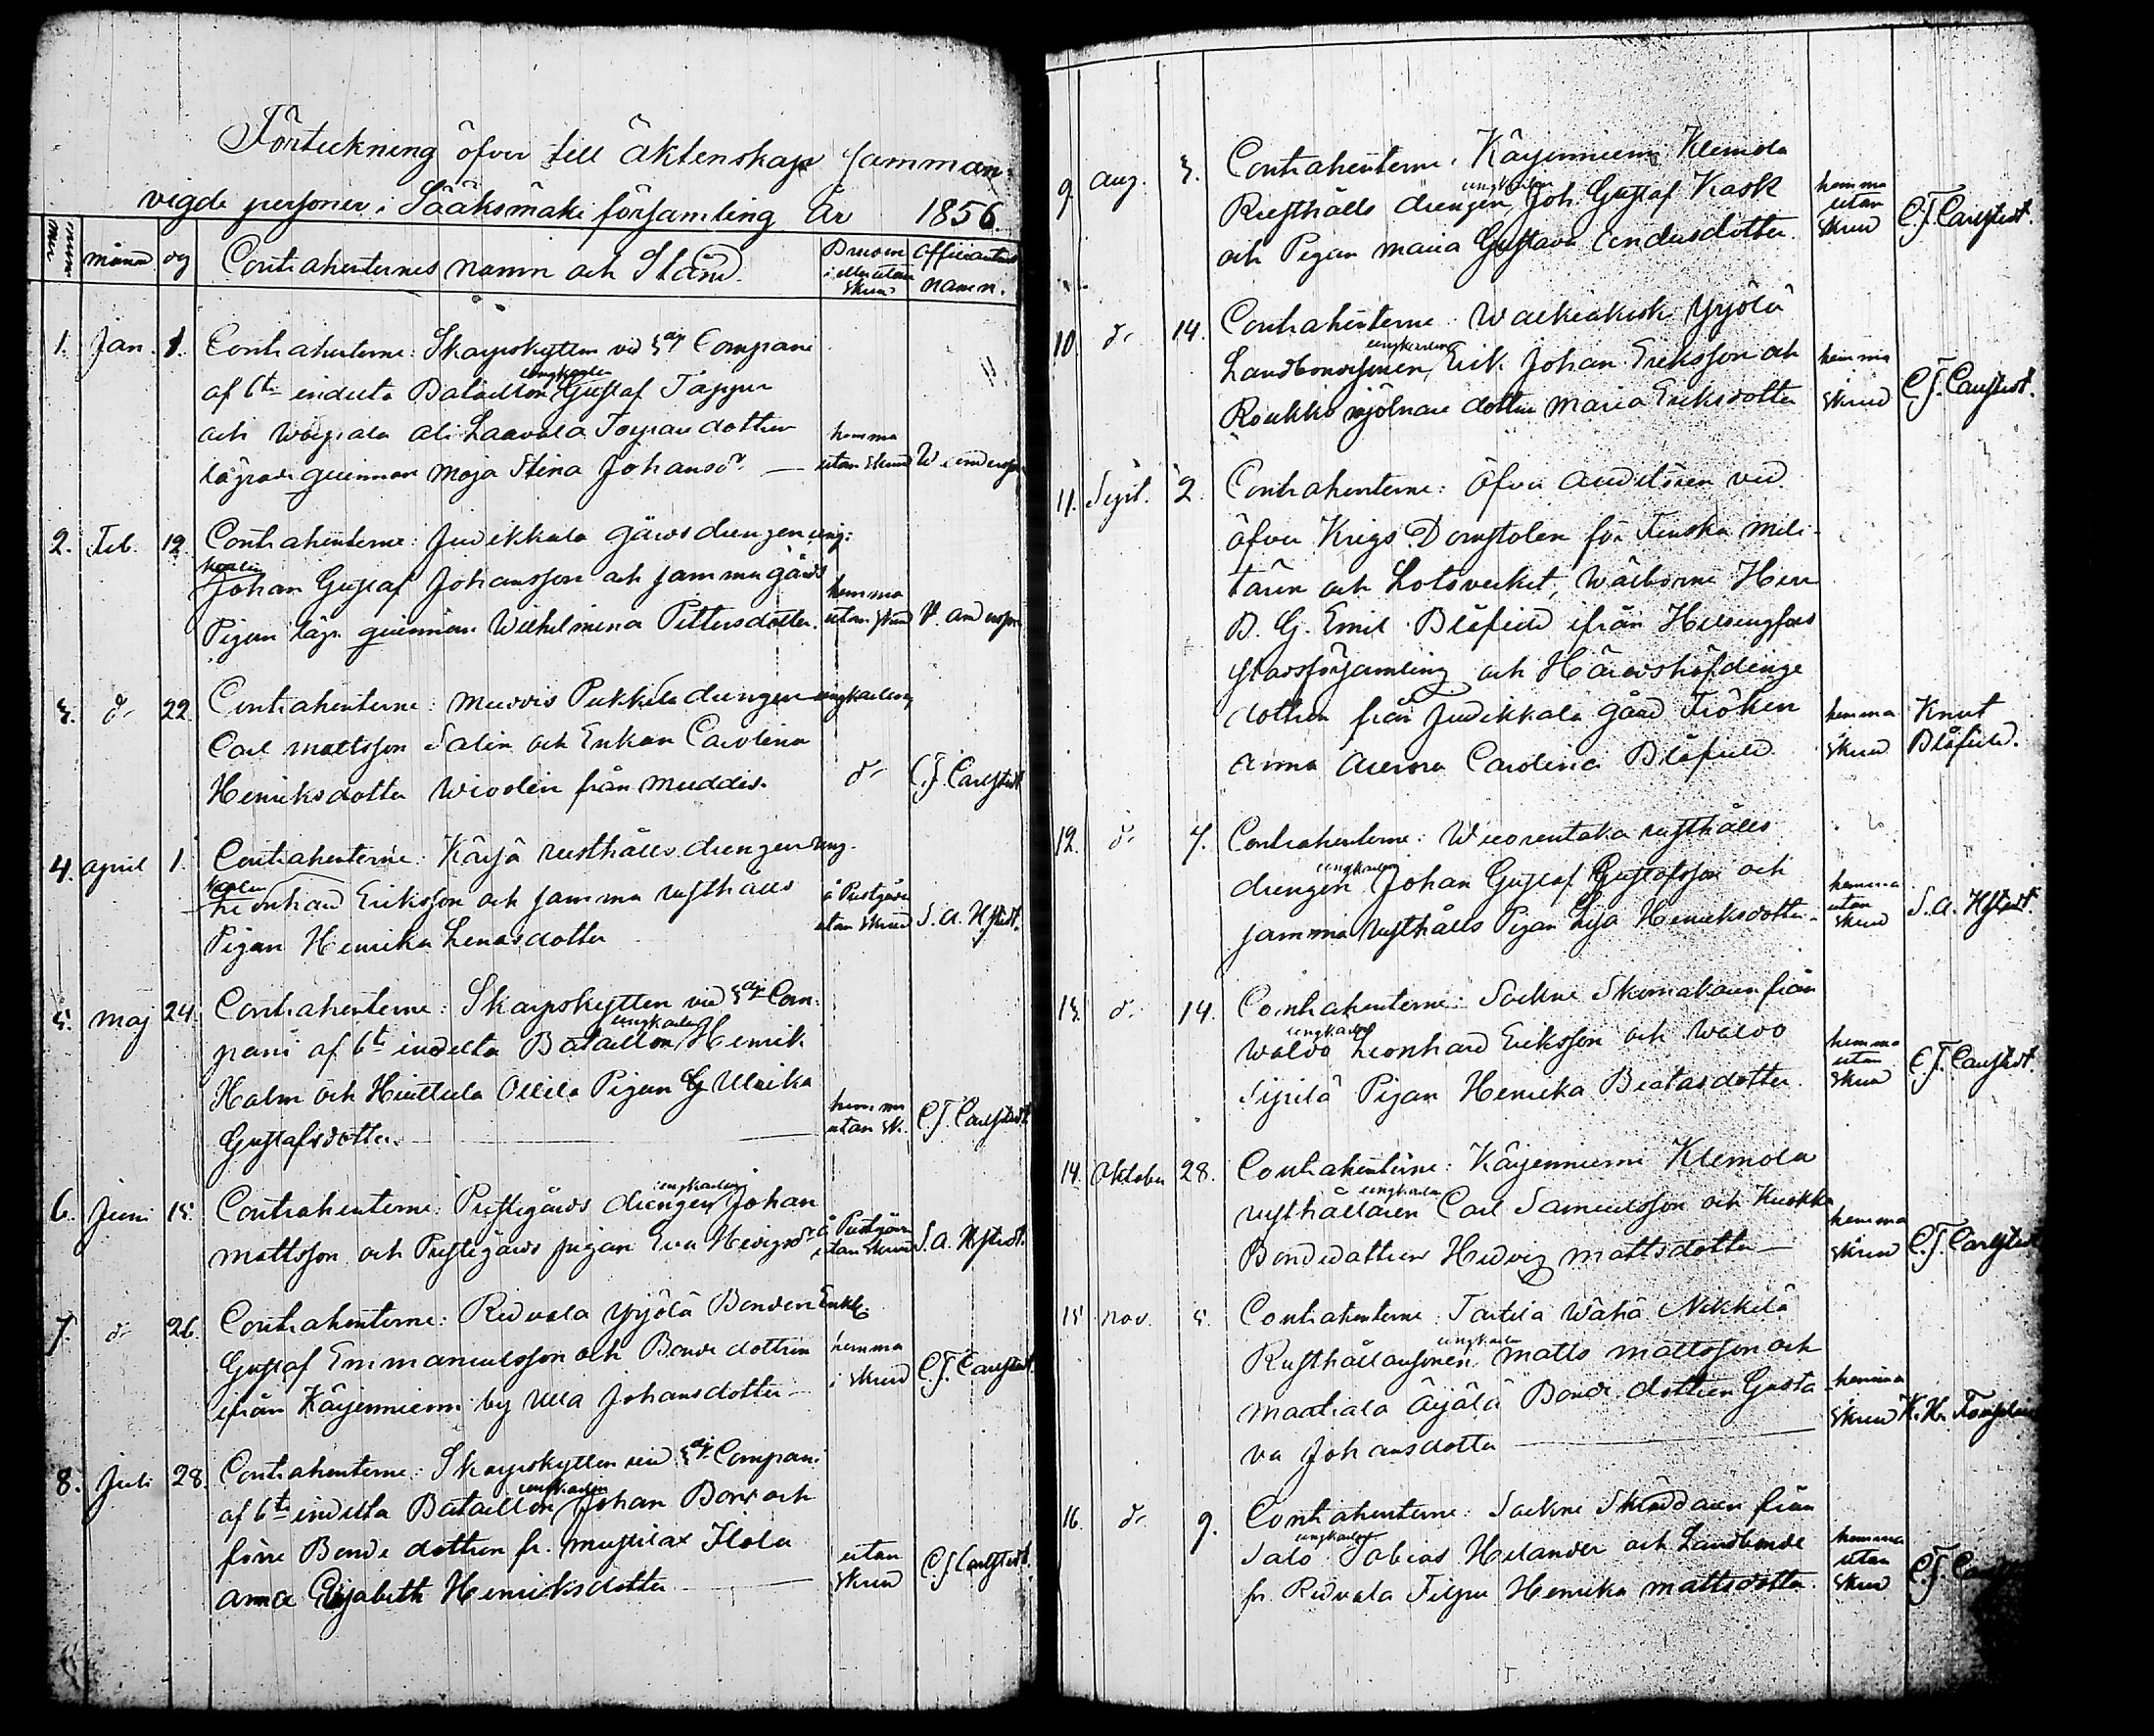 Förteckning öfver till äktenskap samman-
vigde personer i Sääksmäki församling År 1856.
månad dag Contrahenternes namn och Stånd. Bruden i eller utan skrud Officiantens namn.
1. Jan. 1. Contrahenterne: Skarpskytten vid 3dje Compani
af 6te indelta Bataillon ungkarlen Gustaf Tapper
och Ali Laavola dottren
lägrade qvinnan Maja Stina Johansdr. — hemma utan skrud
2. Feb. 12. Contrahenterne: Judikkala gårds drengen ung-
karlen Johan Gustaf Johansson och samma gårds
Pigan lägr. qvinnan Wilhelmina Pettersdotter. hemma utan skrud
3. do 22. Contrahenterne: Muddis Pukkila drengen ungkarlen
Carl Mattsson Salin och Enkan Carolina
Henriksdotter Widolin från Muddis. do C. J. Carlstedt
4. April 1. Contrahenterne: Kärjä rusthålls drengen ung-
karlen Leonhard Eriksson och samma rusthålls
Pigan Henrika Lenasdotter å Prestgården utan skrud S. A. Hjstedt.
5. Maj 24. Contrahenterne: Skarpskytten vid 3dje Com-
pani af 6te indelta Bataillon ungkarlen Henrik
Halm och Huittula Ollila Pigan Ulrika
Gustafsdotter. — hemma utan sk. C. J. Carlstedt
6. Juni 15. Contrahenterne: Prestgårds drengen ungkarlen Johan
Mattsson och Prestgårds pigan Eva Hedvigsdr å Prestgården utan skrud S. A. Hjstedt.
7. do 26. Contrahenterne: Ridvala Yrjölä Bonden Enkl:
Gustaf Emmanuelsson och Bonde dottren
ifrån Kärjenniemi by Ulla Johansdotter — hemma i skrud C. J. Carlstedt.
8. Juli 28. Contrahenterne: Skarpskytten vid 3dje Compani
af 6te indelta Bataillon ungkarlen Johan Bonr och
förre Bonde dottren fr. Mustilax Flola
Anna Elisabeth Henriksdotter — utan skrud C. J. Carlstedt.
9. Aug. 3. Contrahenterne: Kärjenniemi Klemola
Rusthålls drengen ungkarlen Joh. Gustaf Kask
och Pigan Maria Gustava Andersdotter. hemma utan skrud C. J. Carlstedt.
10. do 14. Contrahenterne: Walkiakoski Yrjölä
Landbondesonen ungkarlen Erik Johan Eriksson och
Roukko mjölnare dottren Maria Eriksdotter hemma i skrud C. J. Carlstedt.
11. Sept. 2. Contrahenterne: Öfver Auditören vid
öfver Krigs Domstolen för Finska Mili-
tären och Lotsverket, Wälborne Herr
B. G. Emil Blåfield ifrån Helsingfors
stadsförsamling och Häradshöfdinge
dottren från Judikkala gård Fröken
Anna Aurora Carolina Blåfield hemma i skrud Knut Blåfield.
12. do 7. Contrahenterne: Wuorentaka rusthålls
drengen ungkarlen Johan Gustaf Gustafsson och
samma rusthålls Pigan Lisa Henriksdotter. hemma utan skrud S. A. Hjstedt.
13. do 14. Contrahenterne: Sockne Skomakaren från
Waldo ungkarlen Leonhard Eriksson och Waldo
Sipilä Pigan Henrika Beatasdotter. hemma utan skrud C. J. Carlstedt.
14. Oktober 28. Contrahenterne: Kärjenniemi Klemola
rusthållaren ungkarlen Carl Samuelsson och Kuokka
Bondedottren Hedvig Mattsdotter — hemma i skrud C. J. Carlstedt
15. Nov. 5. Contrahenterne: Tarttila Wähä Nikkilä
Rusthållaresonen ungkarlen Matts Mattsson och
Maatiala Äijälä Bonde dottren Gusta
va Johansdotter — hemma i skrud
16. do 9. Contrahenterne: Sockne Skräddaren från
Salo ungkarlen Tobias Helander och Landbonde
fr. Ridvala Filpu Henrika Mattsdotter. hemma utan skrud C. J.